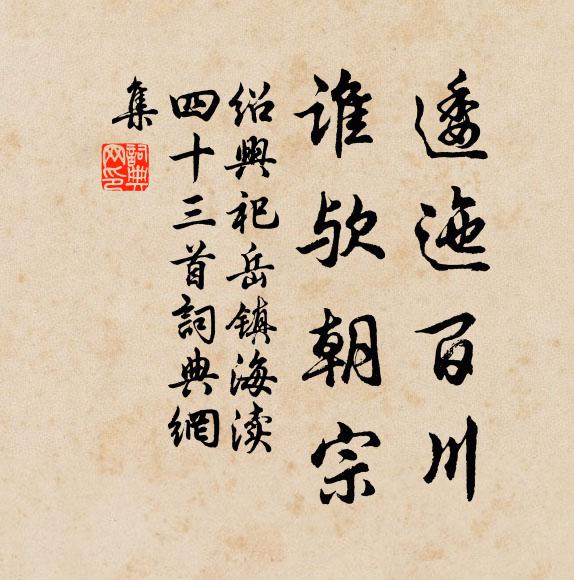 逶迤百川
谁欤朝宗
绍興祀岳镇海渎
四十三首詞典網
集
詞典
网印